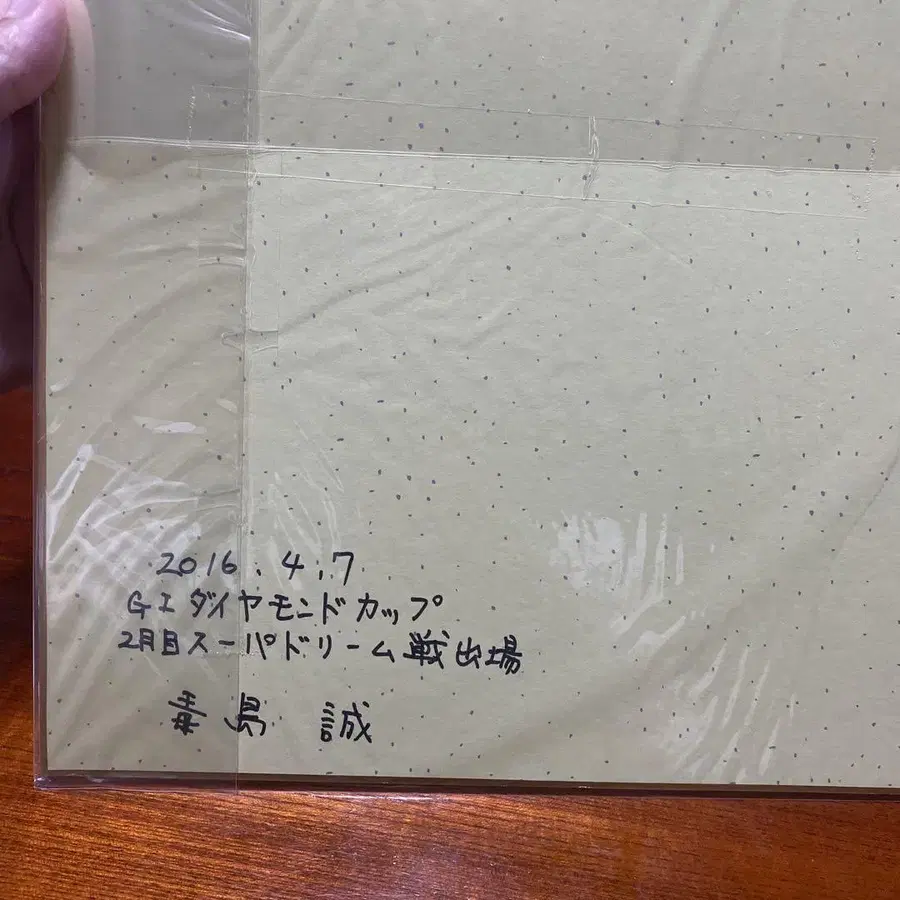 2016.4.7
GIダイヤモンドカップ
2月目スーパドリーム戦出場
毒島 誠